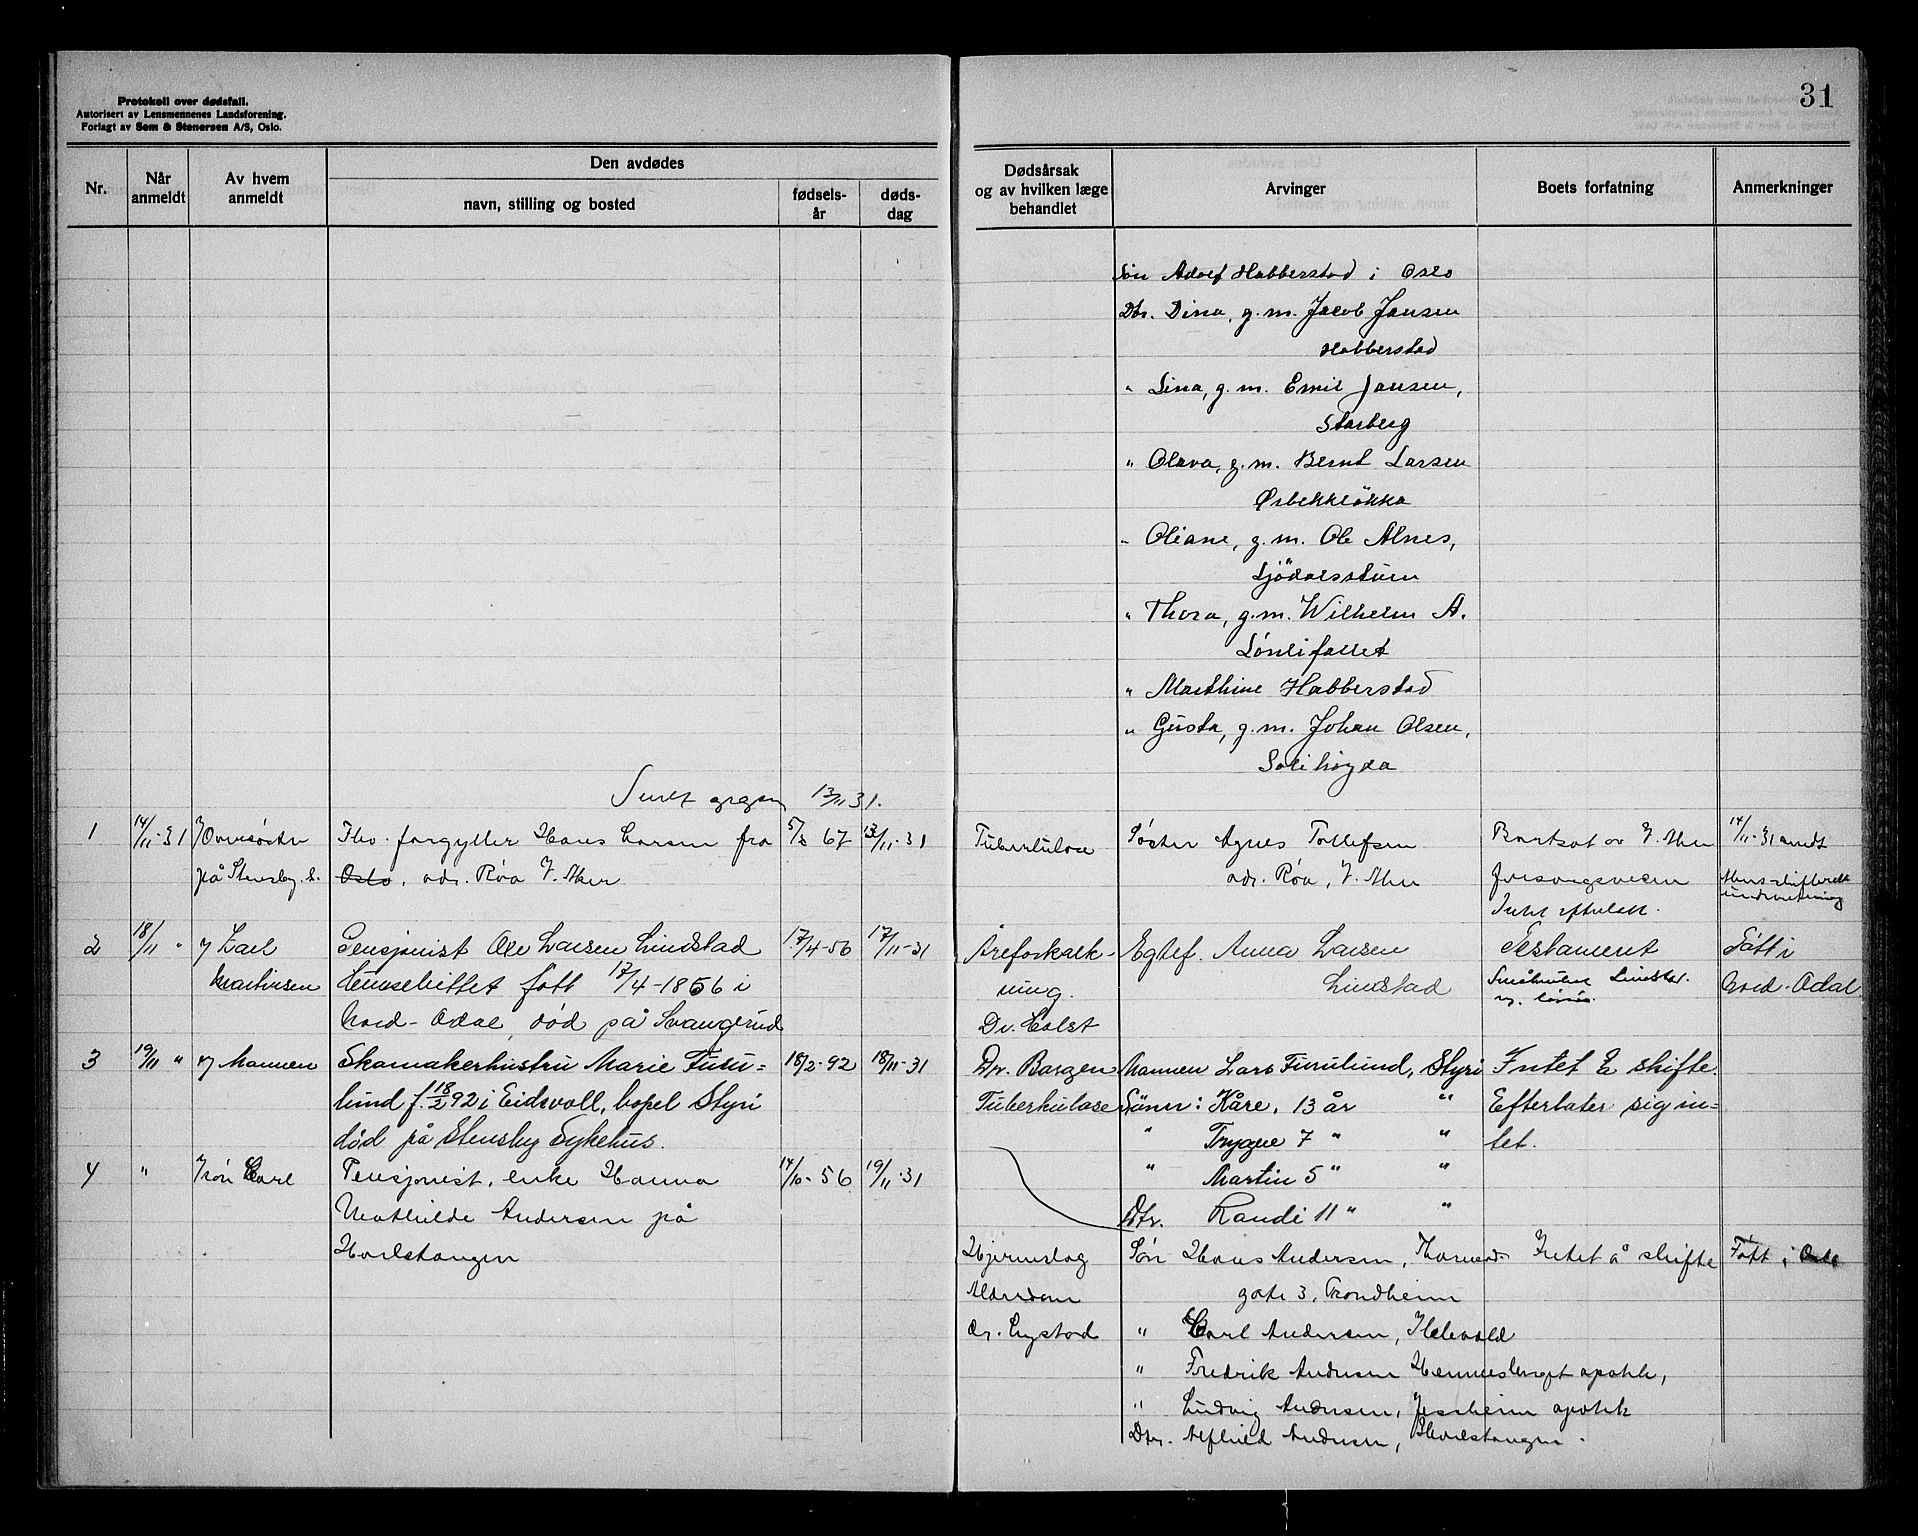 Protokoll over dødsfall.
Autorisert av Lensmennenes Landsforening.
Forlagt av Sem & Stenersen A/S, Oslo.
31
Nr.
Når anmeldt
Av hvem anmeldt
Den avdødes
navn, stilling og bosted
fødselsår
dødsdag
Dødsårsak og av hvilken læge behandlet
Arvinger
Boets forfatning
Anmerkninger
Søn Adolf Habberstad i Oslo
Dtr. Dina, g.m. Jacob Jansen
Habberstad
" Lina, g.m. Emil Jansen,
Starberg
" Olava, g.m. Bernt Larsen
Øsbekkløkka
" Oliane, g.m. Ole Alnes,
Ljödalsstuen
" Thora, g.m. Wilhelm A.
Lönlifallet
" Marthine Habberstad
" Gusta, g.m. Johan Olsen,
Solihøgda
13/11 31.
1 14/11-31 Oversøster
på Stensby s.
Fhv. forgyller Hans Larsen fra
Oslo, adr. Røa V. Aker
5/8 67 13/11-31
Tuberkulose
Søster Agnes Tollefsen
adr. Røa, V. Aker
V. Aker
forsorgsvesen
Intet
14/11-31 sendt
2 18/11 " Karl
Martinsen
Pensjonist Ole Larsen Lindstad
født 17/4-1856 i
Nord-Odal, død på Svangerud
17/4-56 17/11-31
Åreforkalk-
ning.
Dr. Holst
Egtef. Anna Larsen
Lindstad
Testament
Født i
Nord-Odal.
3 19/11 " Mannen
Skomakerhustru Marie Furu-
lund f. 18/2 92 i Eidsvoll, bopel Styri
død på Stensby Sykehus.
18/2-92 18/11-31
Dr. Borgen
Tuberkulose
Mannen Lars Furulund, Styri
Sönn: Kåre, 13 år "
" Trygve 7 " "
" Martin 5 " "
Dtr. Randi 11 " "
Intet å skifte.
Efterlater sig in-
tet.
4 " Søn Carl
Pensjonist, enke Hanna
Mathilde Andersen på
Harlstangen
14/10-56 19/11-31
Hjerneslag
Alderdom
dr. Lystad
Søn Hans Andersen,
gate 3, Trondheim
" Carl Andersen,
" Fredrik Andersen apotek,
" Ludvig Andersen, Jessheim apotek
Dtr. Alfhild Andersen, Harlstangen.
Intet å skifte
Født i Oslo